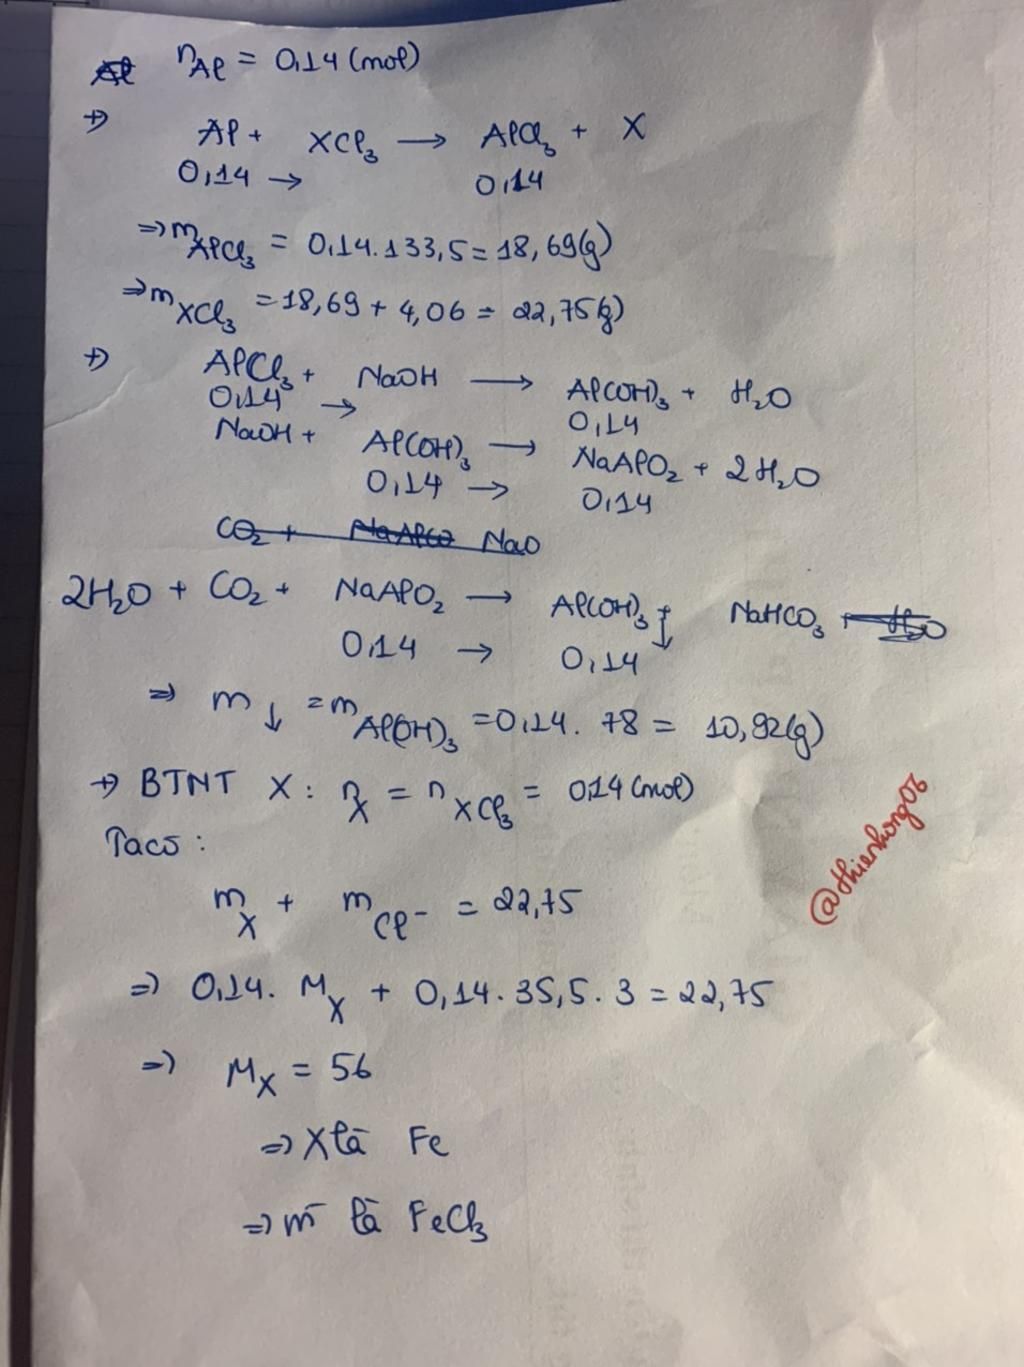 nAl = 0,14 (mol)
→ Al + XCl3 → AlCl3 + X
0,14 → 0,14
=> mAlCl3 = 0,14.133,5 = 18,69(g)
=> mXCl3 = 18,69 + 4,06 = 22,75(g)
→ AlCl3 + NaOH → Al(OH)3 + H2O
0,14 → 0,14
NaOH + Al(OH)3 → NaAlO2 + 2H2O
0,14 → 0,14
CO2 + NaAlO2 NaO
2H2O + CO2 + NaAlO2 → Al(OH)3↓ + NaHCO3 + H2O
0,14 → 0,14
=> m↓ = mAl(OH)3 = 0,14. 78 = 10,92(g)
→ BTNT X: nX = nXCl3 = 0,14 (mol)
Ta có :
mX + mCl- = 22,75
=> 0,14. MX + 0,14.35,5.3 = 22,75
=> MX = 56
=> X là Fe
=> m là FeCl3
@thienhong06